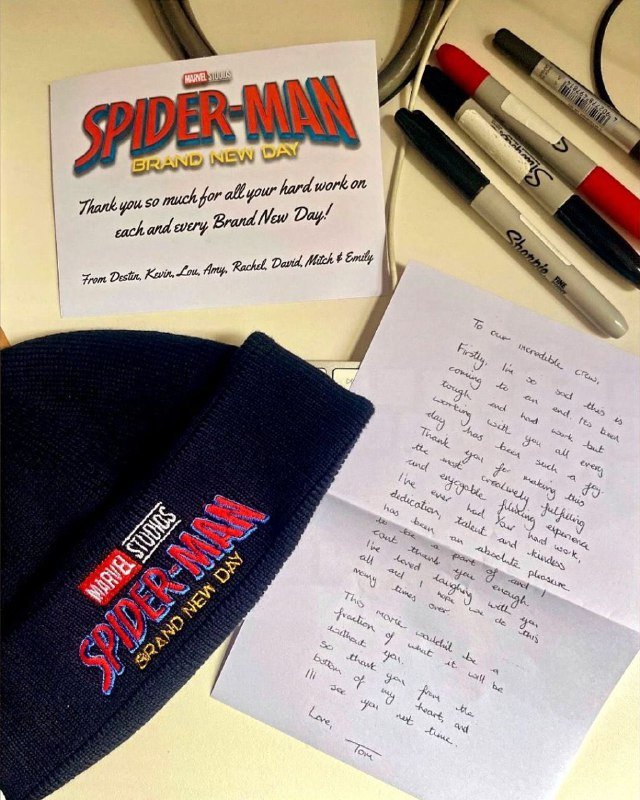 MARVEL STUDIOS
SPIDER-MAN
BRAND NEW DAY
Thank you so much for all your hard work on
each and every Brand New Day!
From Destin, Kevin, Lou, Amy, Rachel, David, Mitch & Emily
Sharpie
Sharpie
FINE
To our incredible crew,
Firstly, I'm so sad this is
coming to an end. It's been
tough and hard work but
working with you all every
day has been such a joy.
Thank you for making this
the most creatively fulfilling
and enjoyable filming experience
I've ever had. Your hard work,
dedication, talent and kindness
has been an absolute pleasure
to be a part of and I
can't thank you enough.
I've loved laughing with you
all and I hope we do this
many times over.
This movie wouldn't be a
fraction of what it will be
without you.
So thank you from the
bottom of my heart, and
I'll see you next time.
Love,
Tom
MARVEL STUDIOS
SPIDER-MAN
BRAND NEW DAY